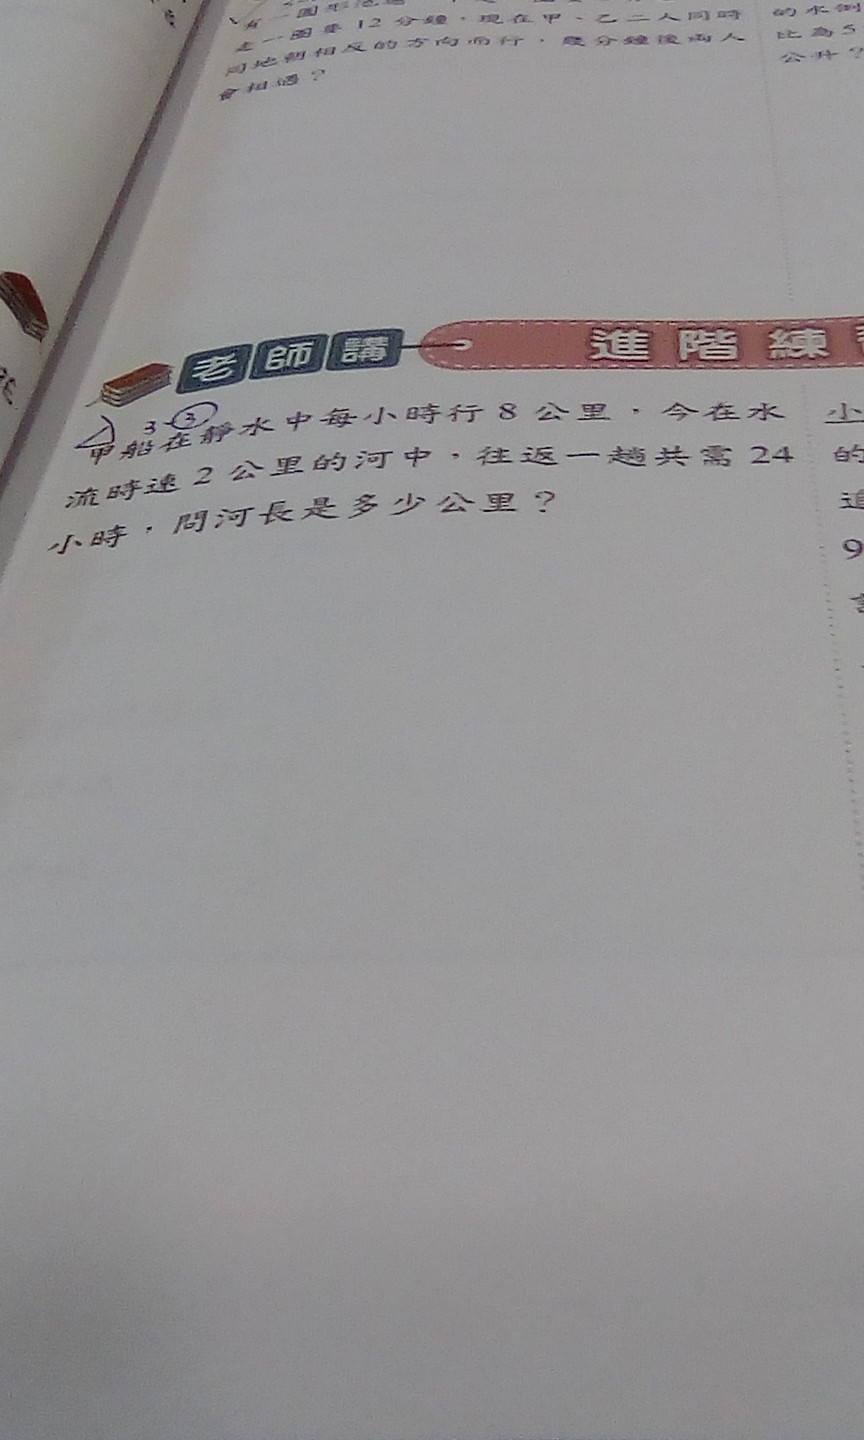 走一圈要12分鐘，現在甲、乙二人同時
同地朝相反的方向而行，幾分鐘後兩人
會相遇？
的水倒
比為5
公升？
老師講
進階練
3-③
甲船在靜水中每小時行8公里，今在水
流時速2公里的河中，往返一趟共需24
小時，問河長是多少公里？
小
的
追
9